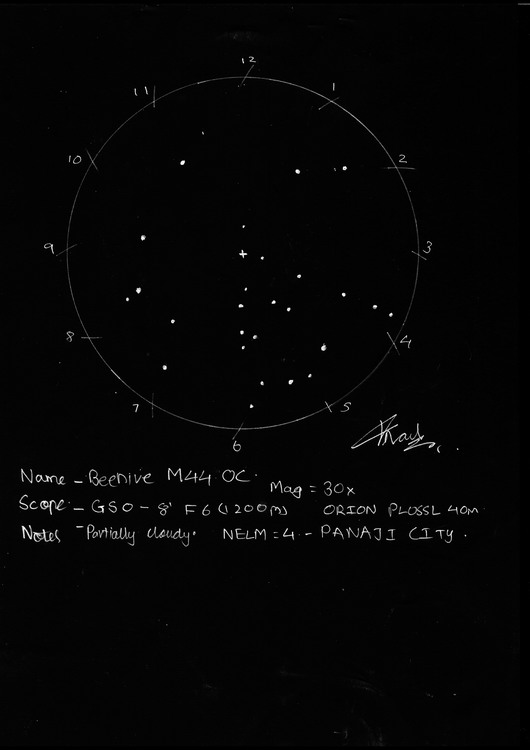 12
11
1
10
2
9
3
8
4
7
5
6
Name - Beehive M44 OC. Mag = 30x
Scope - GSO - 8" F6 (1200m) ORION PLOSSL 40m
Notes - Partially cloudy. NELM = 4 - PANAJI CITY.